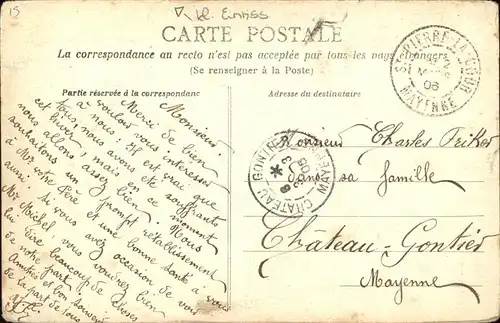 15
CARTE POSTALE
La correspondance au recto n'est pas acceptée par tous les pays étrangers
(Se renseigner à la Poste)
Partie réservée à la correspondance
Adresse du destinataire
Monsieur,
Merci de bien
à vouloir vous intéresser
tous, nous. Il est vrai que
nous avons été souffrants
cet hiver, mais en ce
nous allons assez bien. Nous
souhaitons un prompt rétablissement
à Mr votre Père et une bonne santé à vous
aussi. Si vous avez occasion de voir
Mr Michel, vous voudrez bien
lui dire beaucoup de choses
de notre part.
Amitiés et bon souvenir
de la part de tous
Monsieur Charles Friker
dans sa famille
Château-Gontier
Mayenne
ST-PIERRE-LA-COUR
06
MAYENNE
CHATEAU-GONTIER
MAYENNE